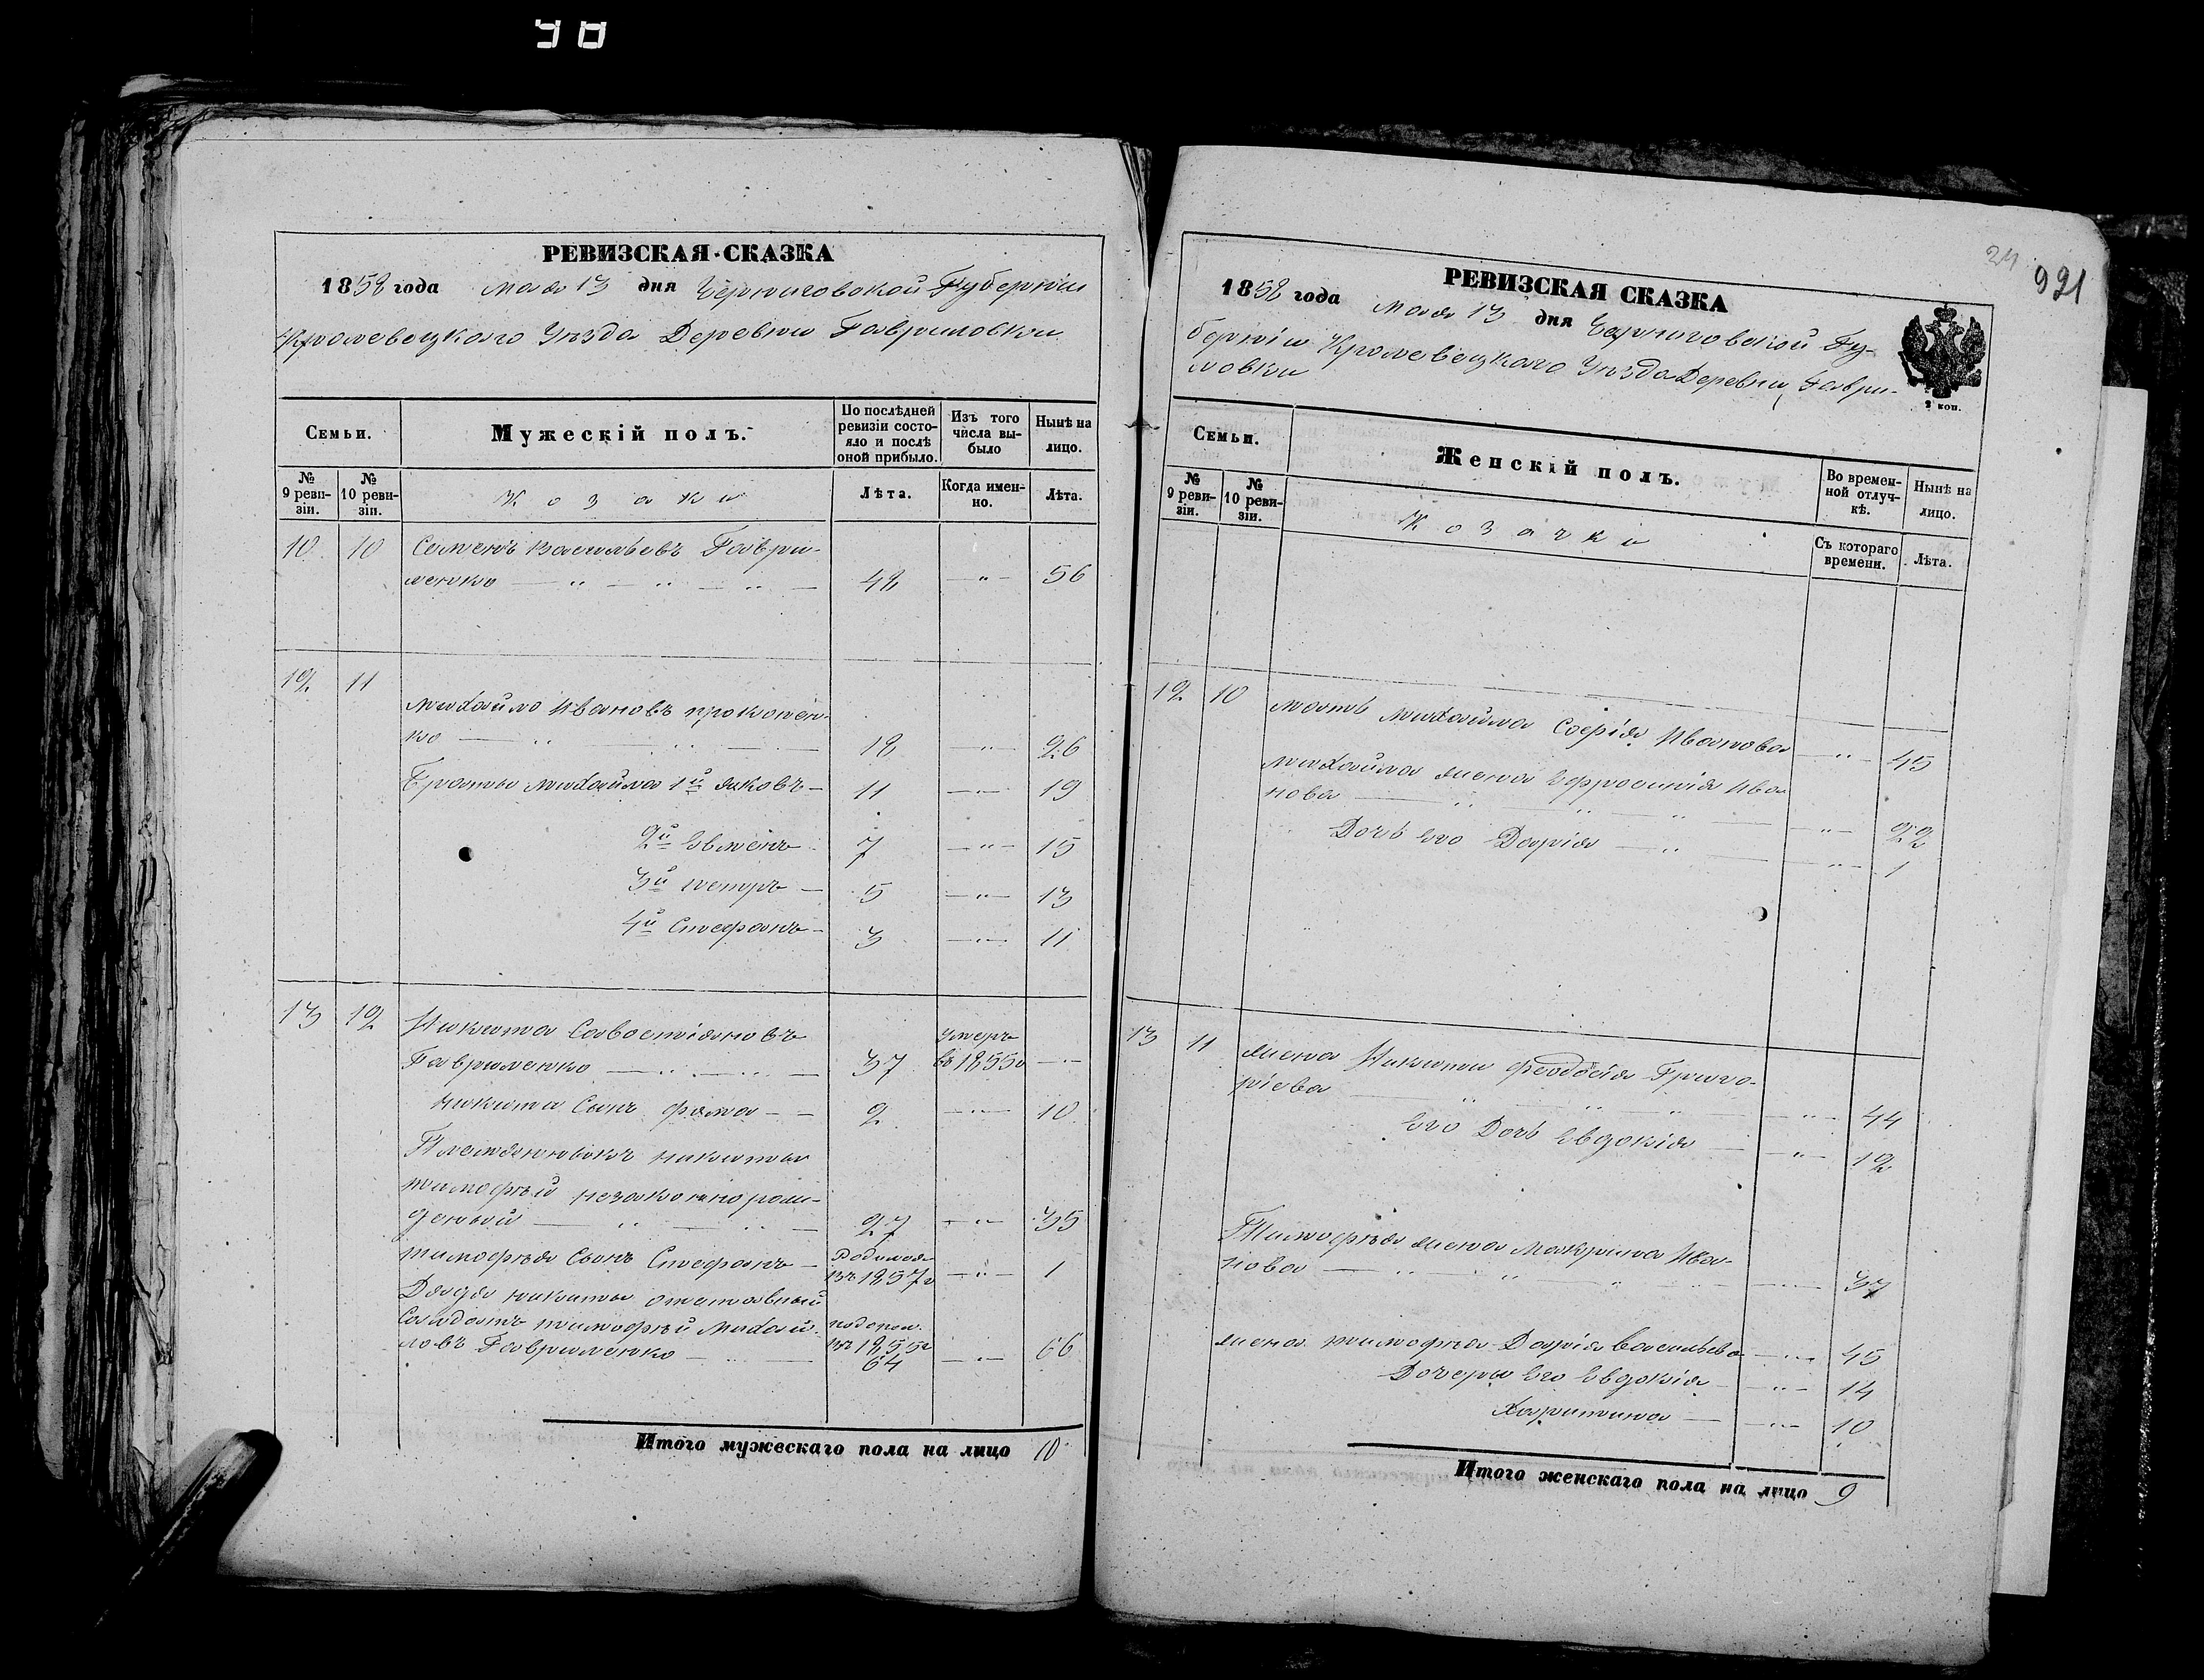 98
РЕВИЗСКАЯ СКАЗКА
1858 года Мая 13 дня Черниговской Губернии
Кролевецкого Уѣзда Деревни Гавриловки
Семьи.
Мужескій полъ.
По послѣдней ревизіи состояло и послѣ оной прибыло.
Изъ того числа выбыло
Нынѣ на лицо.
№ 9 ревизіи.
№ 10 ревизіи.
Козаки
Лѣта.
Когда именно.
Лѣта.
10 10 Семенъ Васильевъ Гаври-
ленко — " — " — " — 48 — " — 56
12 11
Михайло Ивановъ Прокопен-
ко — " — " — 18 " 26
Браты Михайла 1й Яковъ — 11 — " — 19
2й Евменъ 7 — " — 15
3й Петръ — 5 — " — 13
4й Стефанъ — 3 — " — 11
13 12 Никита Савостіяновъ умеръ
Гавриленко — " — 37 въ 1855г —
Никиты Сынъ Фома — — 2 — " — 10
Племянникъ Никиты
Тимофѣй незаконно рож-
деный — " — " — 27 — " — 35
Тимофѣя Сынъ Стефанъ — родился въ 1857г — " — 1
Дядя Никиты отставный
Солдатъ Тимофѣй Михай-
ловъ Гавриленко — въ 1855г 64 — " — 66
Итого мужескаго пола на лицо 10
24
921
РЕВИЗСКАЯ СКАЗКА
1858 года Мая 13 дня Черниговской Гу-
берніи Кролевецкаго Уѣзда Деревни Гаври-
ловки
2 коп.
Семьи.
Женскій полъ.
Во временной отлучкѣ.
Нынѣ на лицо.
№ 9 ревизіи.
№ 10 ревизіи.
Козачки
Съ котораго времени.
Лѣта.
12 10 Мать Михайла Софія Иванова — " — 45
Михайла жена Ефросинія Ива
нова — " — " — " — 22
Дочь его Дарія — " — " — 1
13 11 жена Никиты Феодосія Григо-
ріева — " — " — " — 44
Его Дочь Евдокія — " — 12
Тимофѣя жена Макрина Ива-
нова — " — " — " — 37
жена Тимофѣя Дарія Васильева — " — 45
Дочеры Его Евдокія — " — 14
Харитина — " — 10
Итого женскаго пола на лицо 9